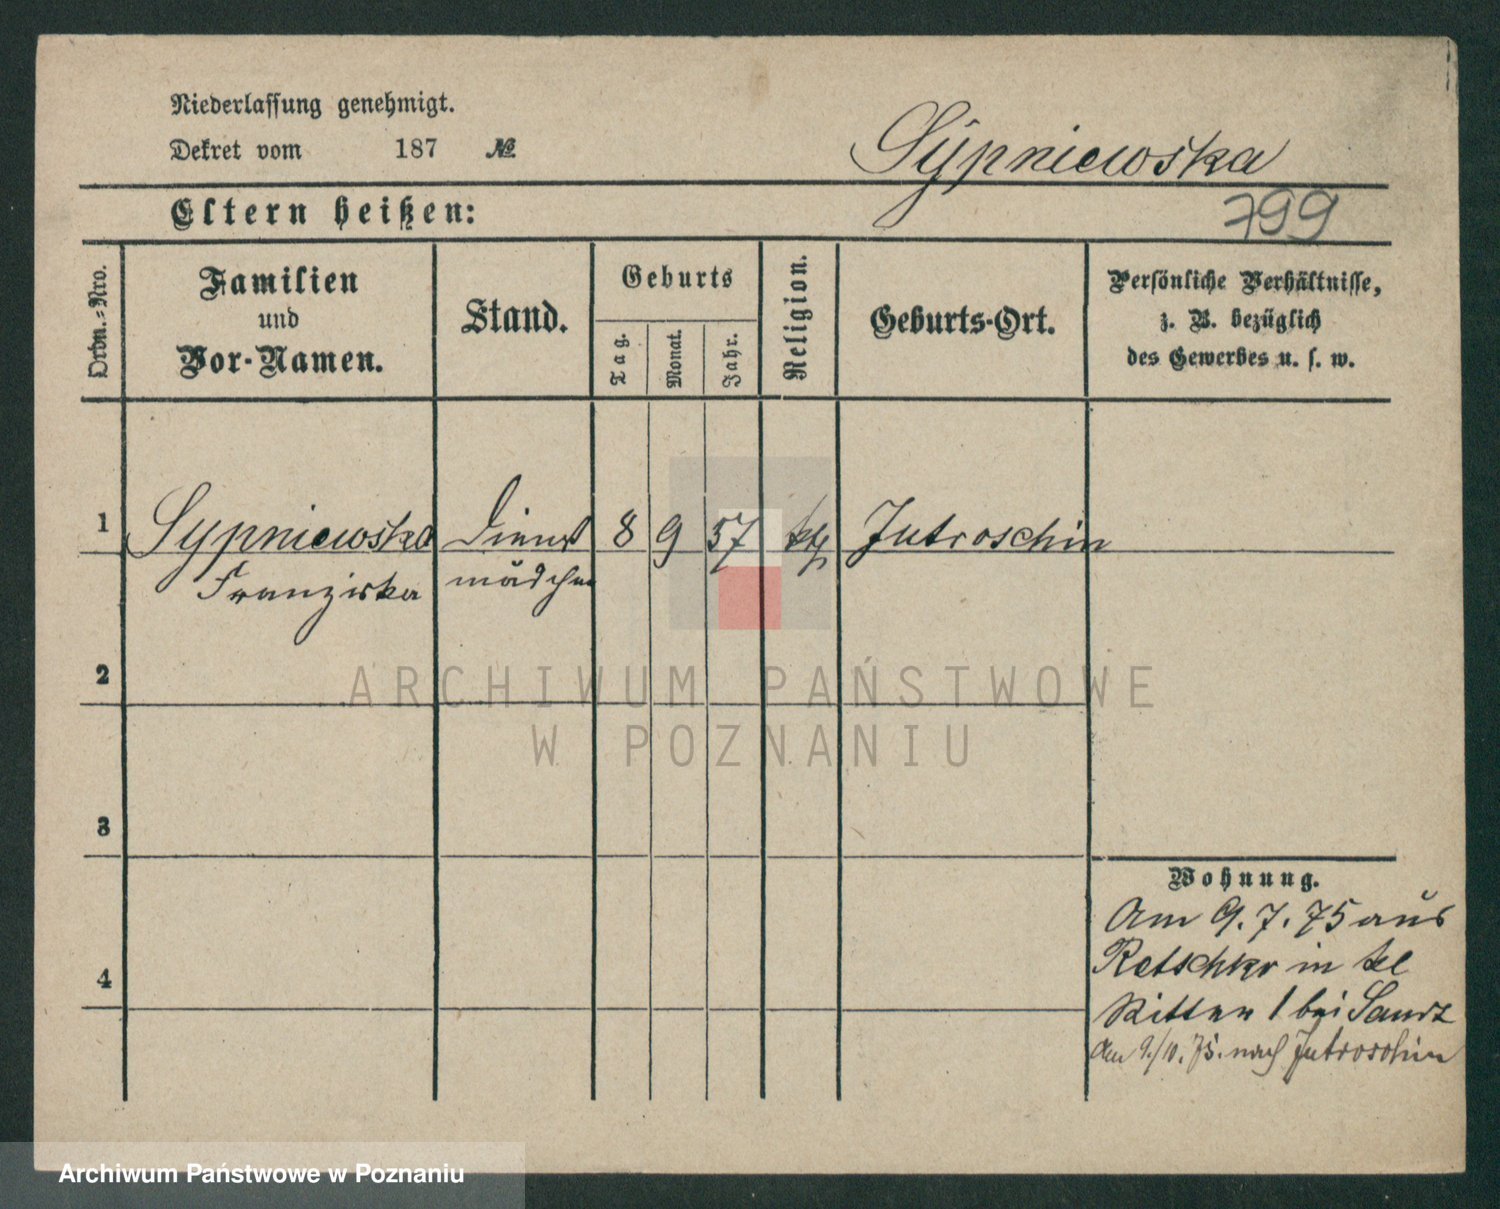 Niederlassung genehmigt.
Dekret vom 187 №
Sypniewska
Eltern heißen:
799
Ordn.-Nro.
Familien
und
Vor-Namen.
Stand.
Geburts
Tag.
Monat.
Jahr.
Religion.
Geburts-Ort.
Persönliche Verhältnisse,
z. B. bezüglich
des Gewerbes u. s. w.
1 Sypniewska Dienst 8 9 57 kth Jutroschin
Franziska mädchen
2
ARCHIWUM PAŃSTWOWE
W POZNANIU
3
Wohnung.
Am 9. 7. 75 aus
in kl
4
Ritter 1 bei
Am 9./10. 75. nach Jutroschin
Archiwum Państwowe w Poznaniu